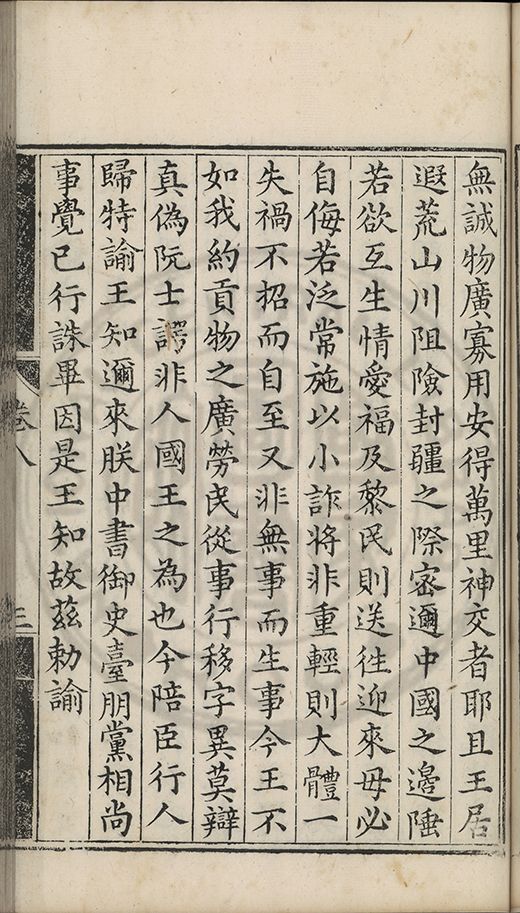 無誠物廣寡用安得萬里神交者耶且王居
遐荒山川阻險封疆之際密邇中國之邊陲
若欲互生情愛福及黎民則送往迎來毋必
自侮若泛常施以小詐將非重輕則大體一
失禍不招而自至又非無事而生事今王不
如我約貢物之廣勞民從事行移字異莫辯
真偽阮士諤非人國王之為也今陪臣行人
歸特諭王知邇來朕中書御史臺朋黨相尚
事覺已行誅畢因是王知故茲勅諭
卷八
三